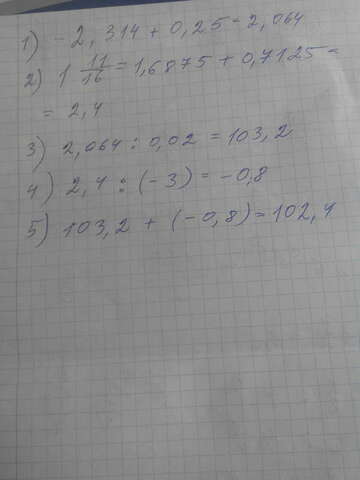 1) - 2,314 + 0,25 - 2,064
2) 1 11/16 = 1,6875 + 0,7125 =
= 2,4
3) 2,064 : 0,02 = 103,2
4) 2,4 : (-3) = -0,8
5) 103,2 + (-0,8) = 102,4